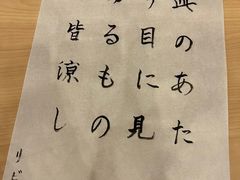 此のあた
り目に見
ゆるもの
皆涼し